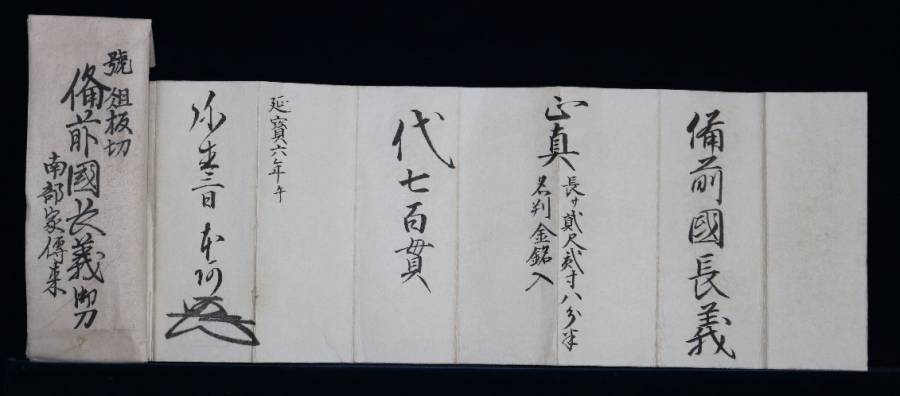 備前國長義
正真 長サ貳尺貳寸八分半
名判金銘入
代七百貫
延寶六年午
弥生三日 本阿
號 俎板切
備前國長義御刀
南部家傳来